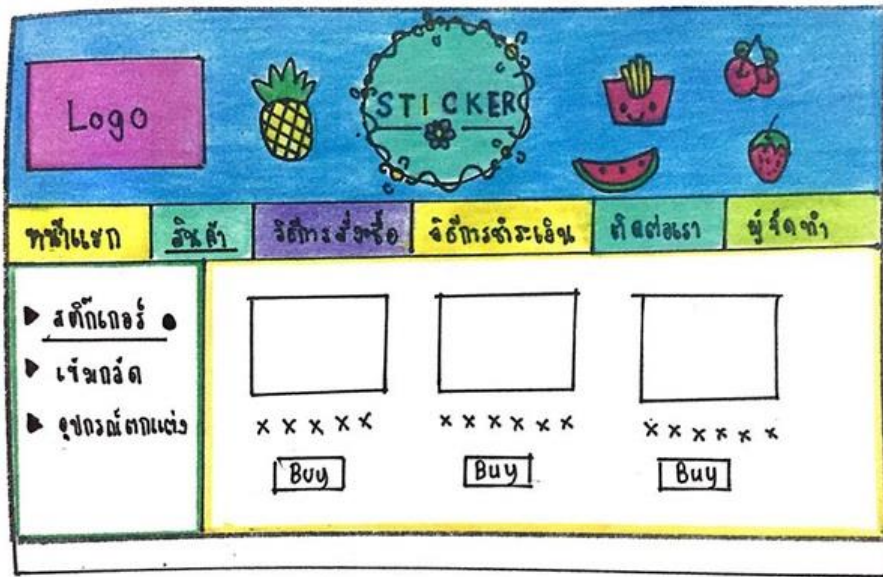 Logo
STICKER
หน้าแรก สินค้า วิธีการสั่งซื้อ วิธีการชำระเงิน ติดต่อเรา ผู้จัดทำ
▶ สติ๊กเกอร์ ●
▶ เข็มกลัด
▶ อุปกรณ์ตกแต่ง
x x x x x x x x x x x x x x x x x
Buy Buy Buy